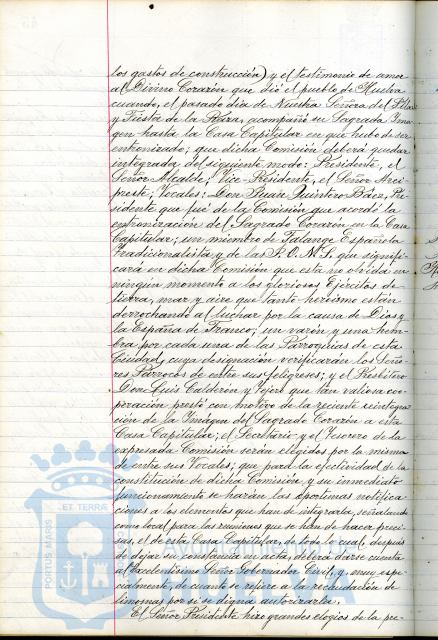 los gastos de construcción) y el testimonio de amor
al Divino Corazón que dió el pueblo de Huelva
cuando, el pasado día de Nuestra Señora del Pilar
y Fiesta de la Raza, acompañó su Sagrada Ima-
gen hasta la Casa Capitular en que hubo de ser
entronizado; que dicha Comisión deberá quedar
integrada del siguiente modo: Presidente, el
Señor Alcalde; Vice-Presidente, el Señor Arci-
preste; Vocales: Don Juan Quintero Báez, Pre-
sidente que fué de la Comisión que acordó la
entronización del Sagrado Corazón en la Casa
Capitular; un miembro de Falange Española
Tradicionalista y de las J.O.N.S., que signifi-
cará en dicha Comisión que esta no olvida en
ningún momento a los gloriosos Ejércitos de
tierra, mar y aire que tanto heroísmo están
derrochando al luchar por la causa de Dios y
la España de Franco; un varón y una hem-
bra por cada una de las Parroquias de esta
Ciudad, cuya designación verificarán los Seño-
res Párrocos de entre sus feligreses; y el Presbítero
Don Luis Calderón y Tejero que tan valiosa coo-
peración prestó con motivo de la reciente reintegra-
ción de la Imagen del Sagrado Corazón a esta
Casa Capitular; el Secretario y el Tesorero de la
expresada Comisión serán elegidos por la misma
de entre sus Vocales; que para la efectividad de la
constitución de dicha Comisión y su inmediato
funcionamiento se harán las oportunas notifica-
ciones a los elementos que han de integrarla, señalando
como local para las reuniones que se han de hacer preci-
sas, el de esta Casa Capitular, de todo lo cual, después
de dejar su constancia en acta, deberá darse cuenta
al Excelentísimo Señor Gobernador Civil, y muy espe-
cialmente, de cuanto se refiere a la recaudación de
limosnas por si se digna autorizarla.
El Señor Presidente hizo grandes elogios de la pre-
PORTUS MARIS
ET TERRAE
HUELVA